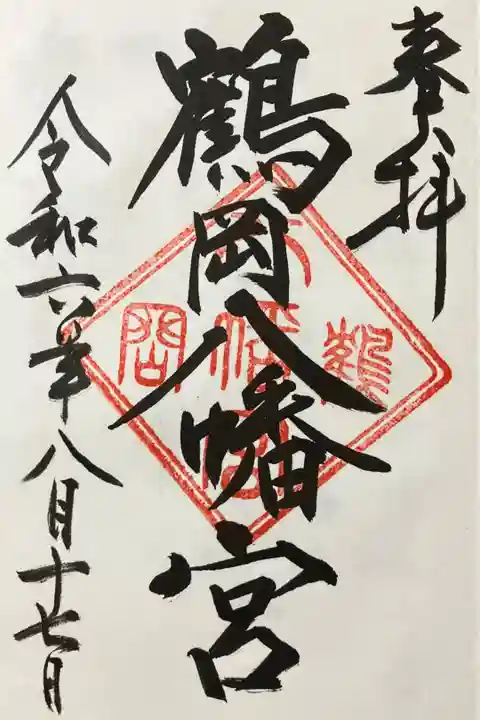 奉拝
鶴岡八幡宮
令和六年八月十七日